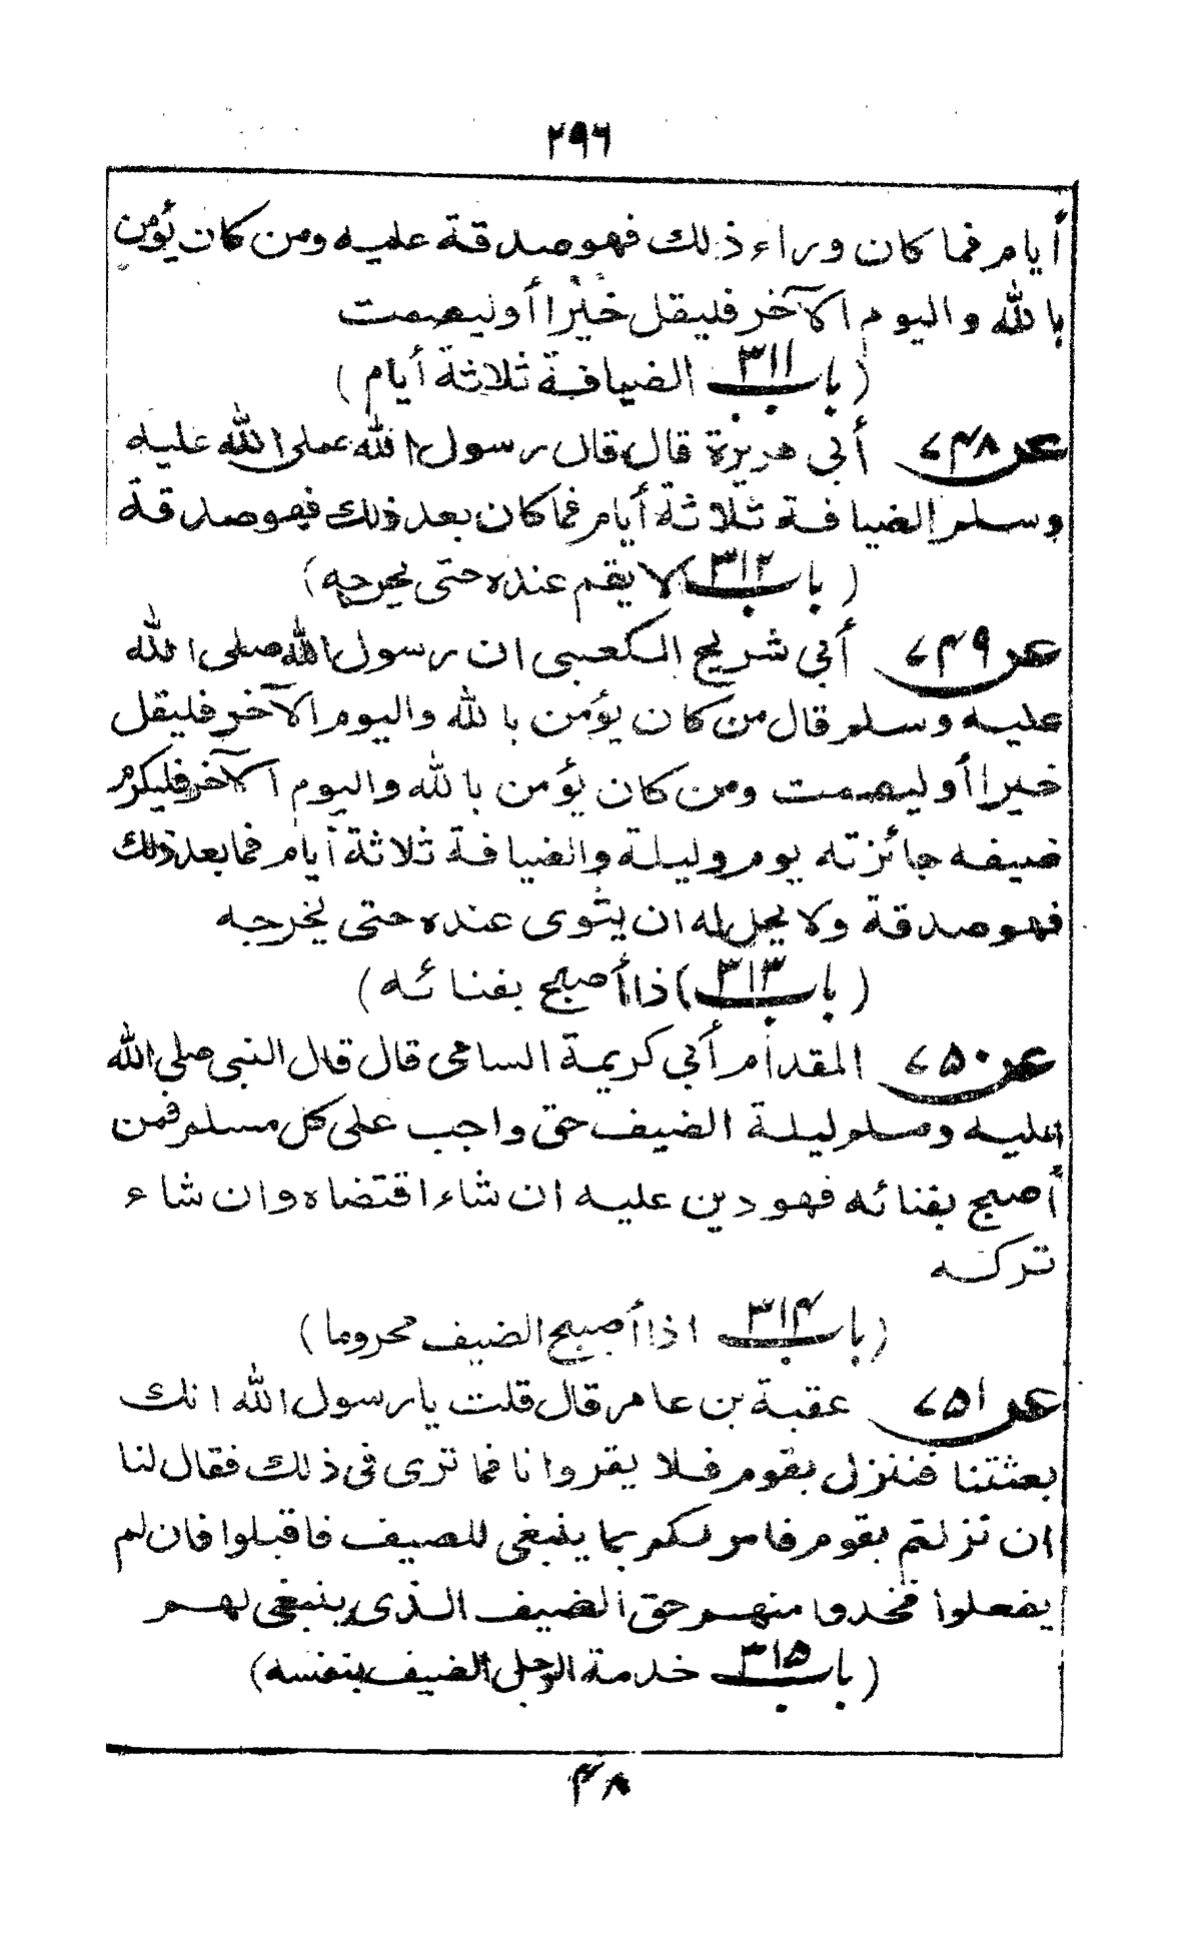 ٢٩٦
أيام فما كان وراء ذلك فهو صدقة عليه ومن كان يؤمن
بالله واليوم الآخر فليقل خيرا أو ليصمت
(باب ٣١١ الضيافة ثلاثة أيام)
عن ٧٤٨ أبي هريرة قال قال رسول الله صلى الله عليه
وسلم الضيافة ثلاثة أيام فما كان بعد ذلك فهو صدقة
(باب ٣١٢ لا يقم عنده حتى يحرجه)
عن ٧٤٩ أبي شريح الكعبي ان رسول الله صلى الله
عليه وسلم قال من كان يؤمن بالله واليوم الآخر فليقل
خيرا أو ليصمت ومن كان يؤمن بالله واليوم الآخر فليكرم
ضيفه جائزته يوم وليلة والضيافة ثلاثة أيام فما بعد ذلك
فهو صدقة ولا يحل له ان يثوى عنده حتى يخرجه
(باب ٣١٣ اذا أصبح بفنائه)
عن ٧٥٠ المقدام أبي كريمة السامي قال قال النبي صلى الله
عليه وسلم ليلة الضيف حق واجب على كل مسلم فمن
أصبح بفنائه فهو دين عليه ان شاء اقتضاه وان شاء
تركه
(باب ٣١٤ اذا أصبح الضيف محروما)
عن ٧٥١ عقبة بن عامر قال قلت يا رسول الله انك
بعثتنا فننزل بقوم فلا يقروانا فما ترى في ذلك فقال لنا
ان نزلتم بقوم فامر لكم بما ينبغي للضيف فاقبلوا فان لم
يفعلوا فخذوا منهم حق الضيف الذي ينبغي لهم
(باب ٣١٥ خدمة الرجل الضيف بنفسه)
٤٨